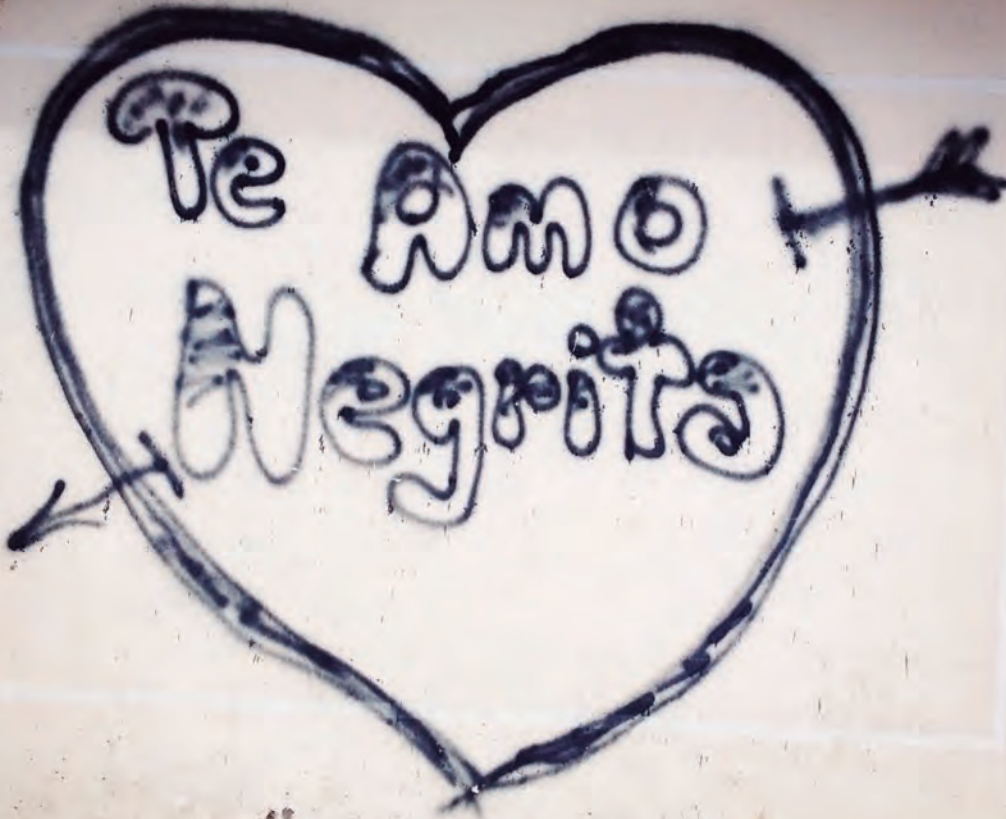 Te Amo
Negrita